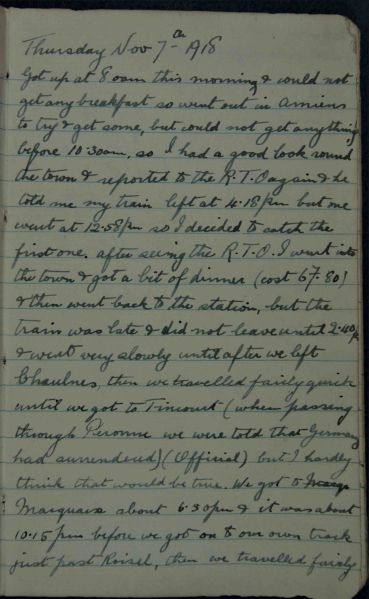 Thursday Nov 7th 1918
Got up at 8 oam this morning, & could not
get any breakfast so went out in Amiens
to try & get some, but could not get anything
before 10.30am, so I had a good look round
the town & reported to the R.T.O again & he
told me my train left at 4.18 pm but one
went at 12.58 pm so I decided to catch the
first one. after seeing the R.T.O. I went into
the town & got a bit of dinner (cost 6f.80)
& then went back to the station, but the
train was late & did not leave until 2.40p
& went very slowly until after we left
Chaulnes, then we travelled fairly quick
until we got to Tincourt (when passing
through Peronne we were told that Germany
had surrendered) (Official) but I hardly
think that would be true. We got to
Marquaix about 6.30pm & it was about
10.15 pm before we got on to our own track
just past Roisel, then we travelled fairly